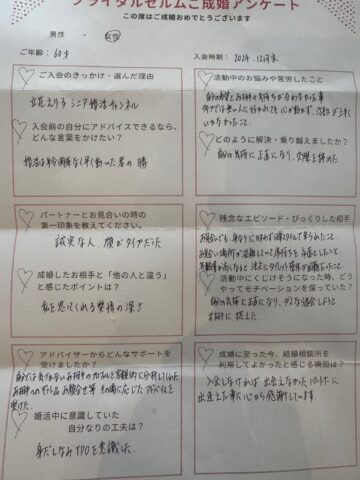 ブライダルゼルムご成婚アンケート
この度はご成婚おめでとうございます
男性 ・ 女性
ご年齢: 60才
入会時期: 2024.12月末
ご入会のきっかけ・選んだ理由
立花えりこシニア婚活チャンネル
入会前の自分にアドバイスできるなら、
どんな言葉をかけたい?
婚活は年令関係なく早く動いた者の勝
活動中のお悩みや苦労したこと
自分の希望とお相手の気持ちが合わなかった事
いかなかったこと。
どのように解決・乗り越えましたか?
自分の気持に正直になり、交際を終了した
パートナーとお見合いの時の
第一印象を教えてください。
誠実な人、顔がタイプだった
成婚したお相手と「他の人と違う」
と感じたポイントは?
私を思ってくれる愛情の深さ
残念なエピソード・びっくりした相手
活動中にくじけそうになった時、どう
やってモチベーションを保っていた?
自分の気持に正直になり、
お相手に伝えた。
アドバイザーからどんなサポートを
受けましたか?
自分では気づかないお相手の
お相手へのギフト品、お断り
受けた。
婚活中に意識していた
自分なりの工夫は?
身だしなみTPOを意識した。
成婚に至った今、結婚相談所を
利用してよかったと感じる瞬間は?
入会しなければ出会えなかったパートナーに
出会えた事に心から感謝してます。